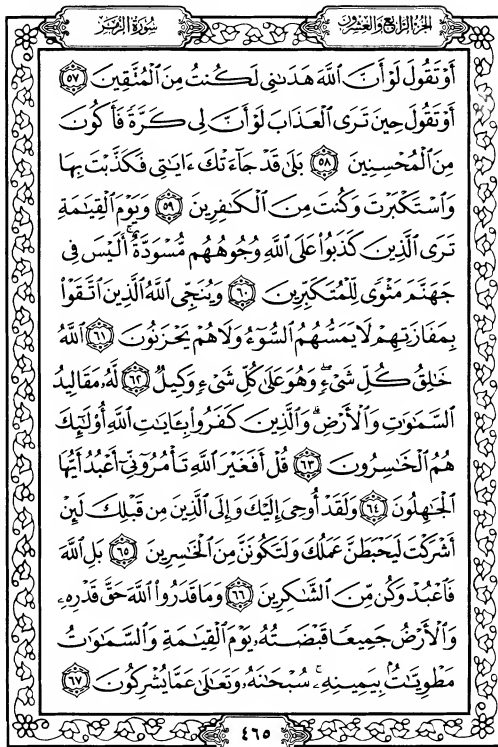 الجزء الرابع والعشرون سورة الزمر
أَوْ تَقُولَ لَوْ أَنَّ ٱللَّهَ هَدَىٰنِى لَكُنتُ مِنَ ٱلْمُتَّقِينَ ٥٧
أَوْ تَقُولَ حِينَ تَرَى ٱلْعَذَابَ لَوْ أَنَّ لِى كَرَّةً فَأَكُونَ
مِنَ ٱلْمُحْسِنِينَ ٥٨ بَلَىٰ قَدْ جَآءَتْكَ ءَايَٰتِى فَكَذَّبْتَ بِهَا
وَٱسْتَكْبَرْتَ وَكُنتَ مِنَ ٱلْكَٰفِرِينَ ٥٩ وَيَوْمَ ٱلْقِيَٰمَةِ
تَرَى ٱلَّذِينَ كَذَبُوا۟ عَلَى ٱللَّهِ وُجُوهُهُم مُّسْوَدَّةٌ ۚ أَلَيْسَ فِى
جَهَنَّمَ مَثْوًى لِّلْمُتَكَبِّرِينَ ٦٠ وَيُنَجِّى ٱللَّهُ ٱلَّذِينَ ٱتَّقَوْا۟
بِمَفَازَتِهِمْ لَا يَمَسُّهُمُ ٱلسُّوٓءُ وَلَا هُمْ يَحْزَنُونَ ٦١ ٱللَّهُ
خَٰلِقُ كُلِّ شَىْءٍ ۖ وَهُوَ عَلَىٰ كُلِّ شَىْءٍ وَكِيلٌ ٦٢ لَّهُۥ مَقَالِيدُ
ٱلسَّمَٰوَٰتِ وَٱلْأَرْضِ ۗ وَٱلَّذِينَ كَفَرُوا۟ بِـَٔايَٰتِ ٱللَّهِ أُو۟لَٰٓئِكَ
هُمُ ٱلْخَٰسِرُونَ ٦٣ قُلْ أَفَغَيْرَ ٱللَّهِ تَأْمُرُوٓنِّىٓ أَعْبُدُ أَيُّهَا
ٱلْجَٰهِلُونَ ٦٤ وَلَقَدْ أُوحِىَ إِلَيْكَ وَإِلَى ٱلَّذِينَ مِن قَبْلِكَ لَئِنْ
أَشْرَكْتَ لَيَحْبَطَنَّ عَمَلُكَ وَلَتَكُونَنَّ مِنَ ٱلْخَٰسِرِينَ ٦٥ بَلِ ٱللَّهَ
فَٱعْبُدْ وَكُن مِّنَ ٱلشَّٰكِرِينَ ٦٦ وَمَا قَدَرُوا۟ ٱللَّهَ حَقَّ قَدْرِهِۦ
وَٱلْأَرْضُ جَمِيعًا قَبْضَتُهُۥ يَوْمَ ٱلْقِيَٰمَةِ وَٱلسَّمَٰوَٰتُ
مَطْوِيَّٰتٌۢ بِيَمِينِهِۦ ۚ سُبْحَٰنَهُۥ وَتَعَٰلَىٰ عَمَّا يُشْرِكُونَ ٦٧
٤٦٥